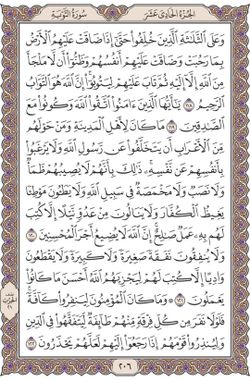 الجزء الحادي عشر
سورة التوبة
وَعَلَى ٱلثَّلَٰثَةِ ٱلَّذِينَ خُلِّفُوا۟ حَتَّىٰٓ إِذَا ضَاقَتْ عَلَيْهِمُ ٱلْأَرْضُ
بِمَا رَحُبَتْ وَضَاقَتْ عَلَيْهِمْ أَنفُسُهُمْ وَظَنُّوٓا۟ أَن لَّا مَلْجَأَ
مِنَ ٱللَّهِ إِلَّآ إِلَيْهِ ثُمَّ تَابَ عَلَيْهِمْ لِيَتُوبُوٓا۟ ۚ إِنَّ ٱللَّهَ هُوَ ٱلتَّوَّابُ
ٱلرَّحِيمُ ١١٨ يَٰٓأَيُّهَا ٱلَّذِينَ ءَامَنُوا۟ ٱتَّقُوا۟ ٱللَّهَ وَكُونُوا۟ مَعَ
ٱلصَّٰدِقِينَ ١١٩ مَا كَانَ لِأَهْلِ ٱلْمَدِينَةِ وَمَنْ حَوْلَهُم
مِّنَ ٱلْأَعْرَابِ أَن يَتَخَلَّفُوا۟ عَن رَّسُولِ ٱللَّهِ وَلَا يَرْغَبُوا۟
بِأَنفُسِهِمْ عَن نَّفْسِهِۦ ۚ ذَٰلِكَ بِأَنَّهُمْ لَا يُصِيبُهُمْ ظَمَأٌ
وَلَا نَصَبٌ وَلَا مَخْمَصَةٌ فِى سَبِيلِ ٱللَّهِ وَلَا يَطَـُٔونَ مَوْطِئًا
يَغِيظُ ٱلْكُفَّارَ وَلَا يَنَالُونَ مِنْ عَدُوٍّ نَّيْلًا إِلَّا كُتِبَ
لَهُم بِهِۦ عَمَلٌ صَٰلِحٌ ۚ إِنَّ ٱللَّهَ لَا يُضِيعُ أَجْرَ ٱلْمُحْسِنِينَ ١٢٠
وَلَا يُنفِقُونَ نَفَقَةً صَغِيرَةً وَلَا كَبِيرَةً وَلَا يَقْطَعُونَ
وَادِيًا إِلَّا كُتِبَ لَهُمْ لِيَجْزِيَهُمُ ٱللَّهُ أَحْسَنَ مَا كَانُوا۟
يَعْمَلُونَ ١٢١ ۞ وَمَا كَانَ ٱلْمُؤْمِنُونَ لِيَنفِرُوا۟ كَآفَّةً ۚ
فَلَوْلَا نَفَرَ مِن كُلِّ فِرْقَةٍ مِّنْهُمْ طَآئِفَةٌ لِّيَتَفَقَّهُوا۟ فِى ٱلدِّينِ
وَلِيُنذِرُوا۟ قَوْمَهُمْ إِذَا رَجَعُوٓا۟ إِلَيْهِمْ لَعَلَّهُمْ يَحْذَرُونَ ١٢٢
٢٠٦